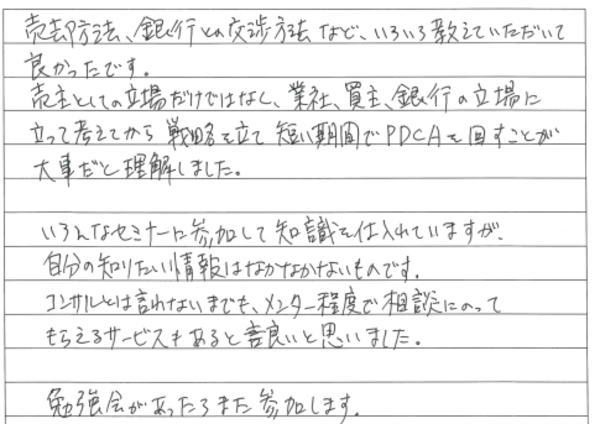 売却方法、銀行との交渉方法など、いろいろ教えていただいて
良かったです。
売主としての立場だけではなく、業社、買主、銀行の立場に
立って考えてから戦略を立て短い期間でPDCAを回すことが
大事だと理解しました。
いろんなセミナーに参加して知識を仕入れていますが、
自分の知りたい情報はなかなかないものです。
コンサルとは言わないまでも、メンター程度で相談にのって
もらえるサービスもあると善良いと思いました。
勉強会があったらまた参加します。